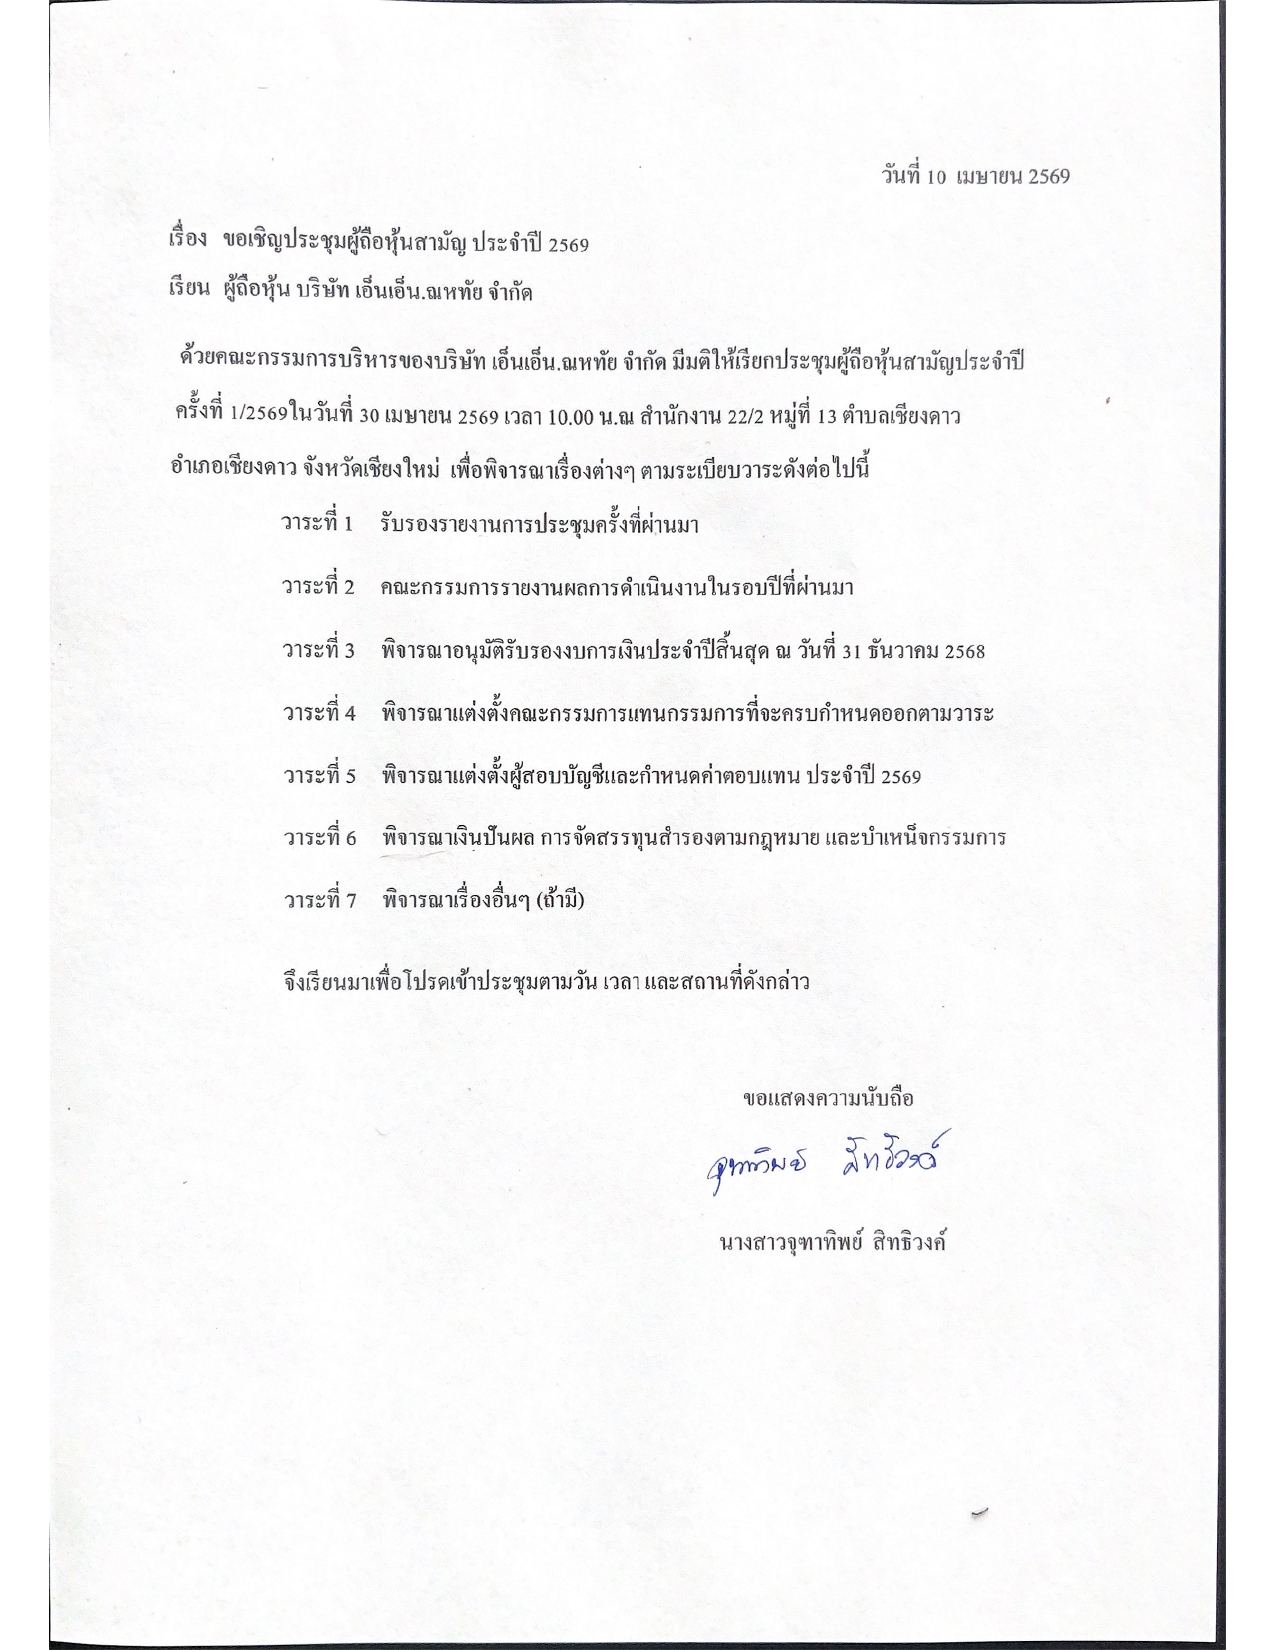 วันที่ 10 เมษายน 2569
เรื่อง ขอเชิญประชุมผู้ถือหุ้นสามัญ ประจำปี 2569
เรียน ผู้ถือหุ้น บริษัท เอ็นเอ็น.ณหทัย จำกัด
ด้วยคณะกรรมการบริหารของบริษัท เอ็นเอ็น.ณหทัย จำกัด มีมติให้เรียกประชุมผู้ถือหุ้นสามัญประจำปี
ครั้งที่ 1/2569ในวันที่ 30 เมษายน 2569 เวลา 10.00 น.ณ สำนักงาน 22/2 หมู่ที่ 13 ตำบลเชียงดาว
อำเภอเชียงดาว จังหวัดเชียงใหม่ เพื่อพิจารณาเรื่องต่างๆ ตามระเบียบวาระดังต่อไปนี้
วาระที่ 1 รับรองรายงานการประชุมครั้งที่ผ่านมา
วาระที่ 2 คณะกรรมการรายงานผลการดำเนินงานในรอบปีที่ผ่านมา
วาระที่ 3 พิจารณาอนุมัติรับรองงบการเงินประจำปีสิ้นสุด ณ วันที่ 31 ธันวาคม 2568
วาระที่ 4 พิจารณาแต่งตั้งคณะกรรมการแทนกรรมการที่จะครบกำหนดออกตามวาระ
วาระที่ 5 พิจารณาแต่งตั้งผู้สอบบัญชีและกำหนดค่าตอบแทน ประจำปี 2569
วาระที่ 6 พิจารณาเงินปันผล การจัดสรรทุนสำรองตามกฎหมาย และบำเหน็จกรรมการ
วาระที่ 7 พิจารณาเรื่องอื่นๆ (ถ้ามี)
จึงเรียนมาเพื่อโปรดเข้าประชุมตามวัน เวลา และสถานที่ดังกล่าว
ขอแสดงความนับถือ
จุฑาทิพย์ สิทธิวงค์
นางสาวจุฑาทิพย์ สิทธิวงค์